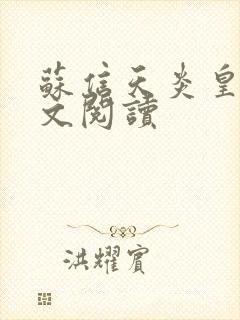 蘇信天炎皇
文閱讀
洪耀賓